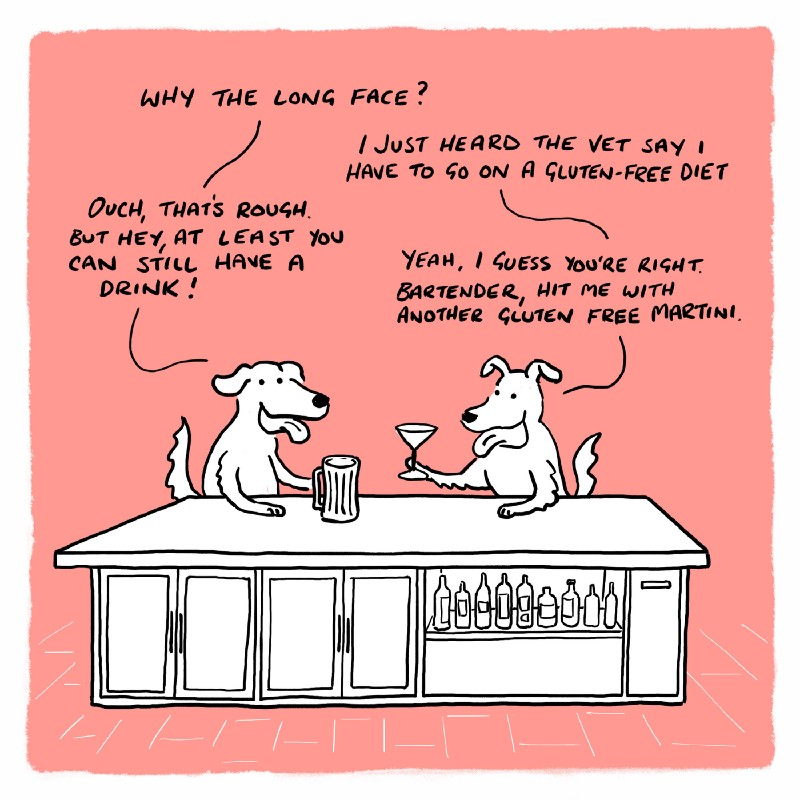 WHY THE LONG FACE?
I JUST HEARD THE VET SAY I
HAVE TO GO ON A GLUTEN-FREE DIET
OUCH, THAT'S ROUGH.
BUT HEY, AT LEAST YOU
CAN STILL HAVE A
DRINK!
YEAH, I GUESS YOU'RE RIGHT.
BARTENDER, HIT ME WITH
ANOTHER GLUTEN FREE MARTINI.